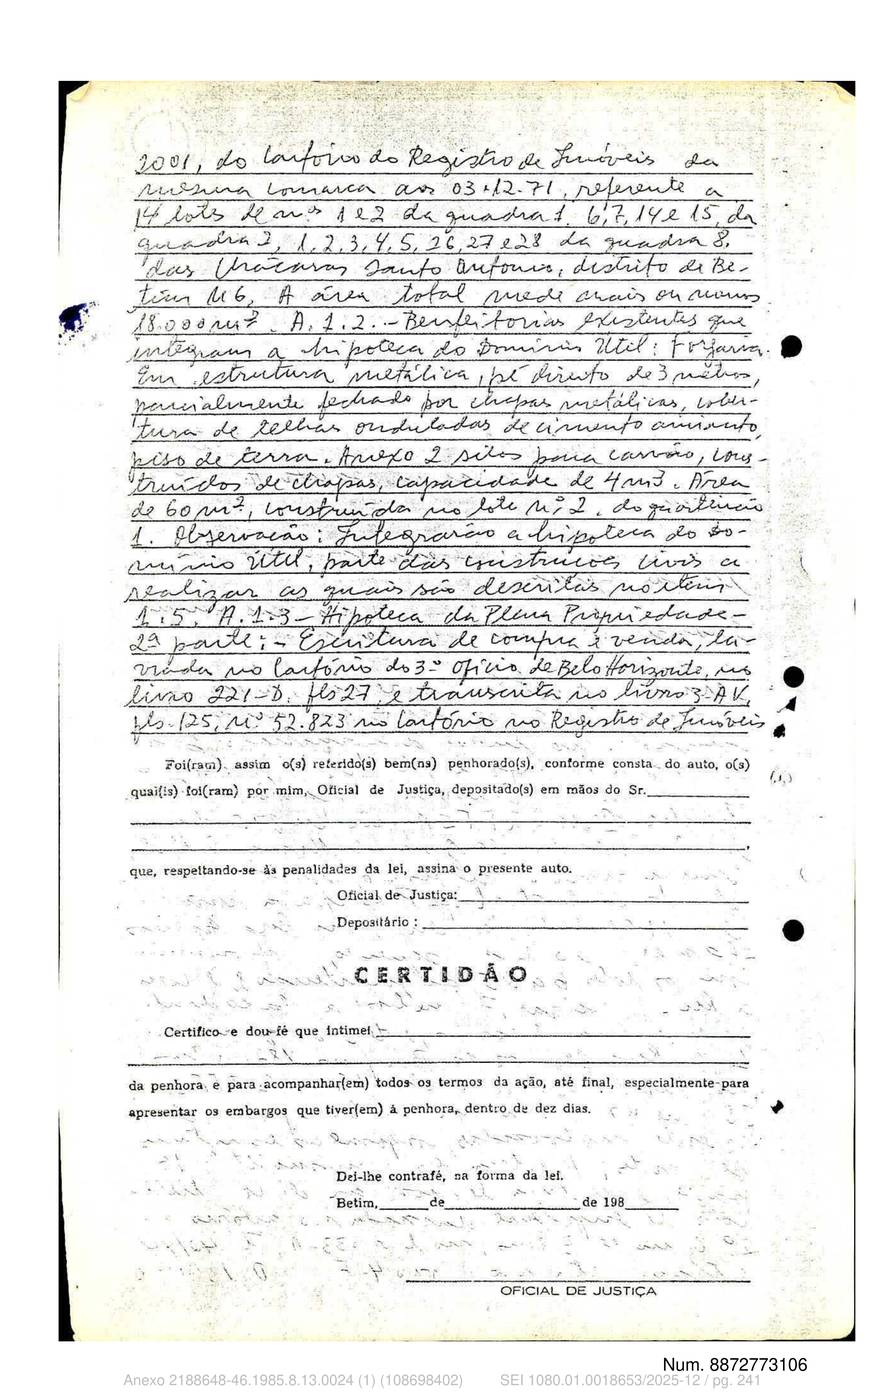 2001, do Cartório do Registro de Imóveis da
mesma comarca aos 03-12-71, referente a
14 lotes de nºs 1 e 2 da quadra 1, 6, 7, 14 e 15, da
quadra 2, 1, 2, 3, 4, 5, 26, 27 e 28 da quadra 8,
das Chácaras Santo Antonio, distrito de Be-
tim MG, A área total mede mais ou menos
18.000 m². A.1.2. - Benfeitorias existentes que
integram a hipoteca do Domínio Útil: Forjaria.
Em estrutura metálica, pé direito de 3 metros,
parcialmente fechado por chapas metálicas, cober-
tura de telhas onduladas de cimento amianto,
piso de terra. Anexo 2 silos para carvão, cons-
truídos de chapas, capacidade de 4m3. Área
de 60 m², construída no lote nº 2, do quarteirão
1. Observação: Integrarão a hipoteca do Do-
mínio Útil, parte das construções civis a
realizar as quais são descritas no item
1.5. A.1.3 - Hipoteca da Plena Propriedade -
2ª parte: - Escritura de compra e venda, la-
vrada no Cartório do 3º Ofício de Belo Horizonte, no
livro 221-D, fls 27, e transcrita no livro 3-AV,
fls. 125, Nº 52.823 no Cartório no Registro de Imóveis
Foi(ram) assim o(s) referido(s) bem(ns) penhorado(s), conforme consta do auto, o(s)
qual(is) foi(ram) por mim, Oficial de Justiça, depositado(s) em mãos do Sr.
que, respeitando-se às penalidades da lei, assina o presente auto.
Oficial de Justiça:
Depositário :
CERTIDÃO
Certifico e dou fé que intimei
da penhora e para acompanhar(em) todos os termos da ação, até final, especialmente para
apresentar os embargos que tiver(em) à penhora, dentro de dez dias.
Dei-lhe contrafé, na forma da lei.
Betim, de de 198
OFICIAL DE JUSTIÇA
Num. 8872773106
Anexo 2188648-46.1985.8.13.0024 (1) (108698402) SEI 1080.01.0018653/2025-12 / pg. 241